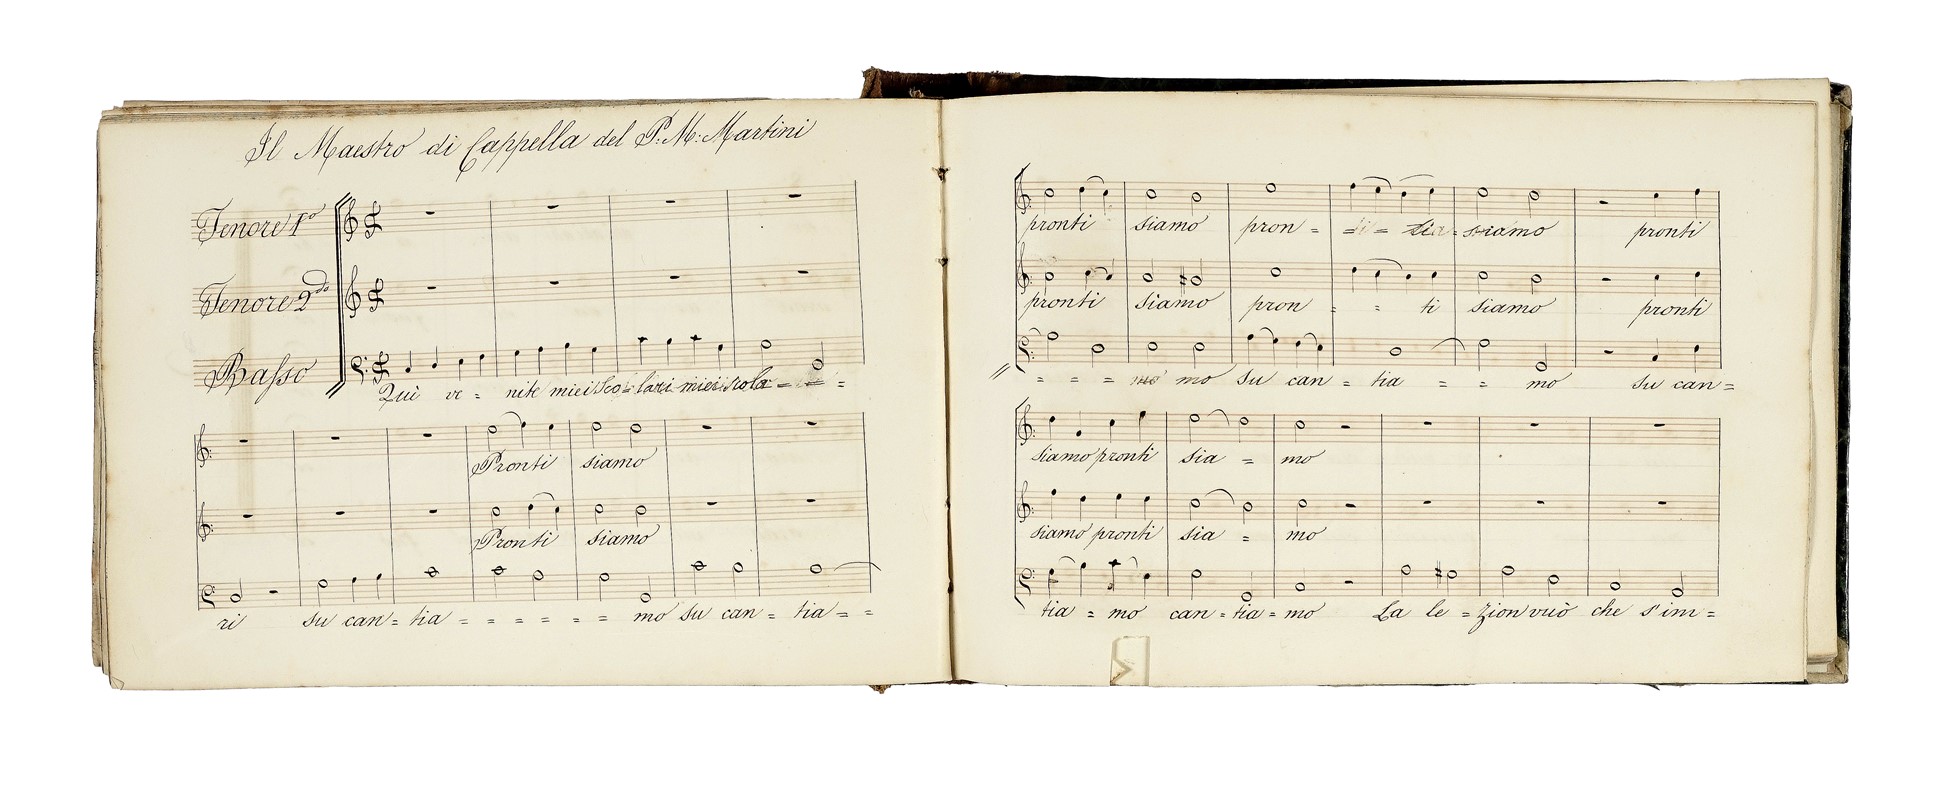 Il Maestro di Cappella del P. M: Martini
Tenore 1º
Tenore 2do
Basso
Qui ve = nite miei Sco = lari miei scola = = =
Pronti siamo
Pronti siamo
ri su can = tia = = = = = mo su can = tia = =
pronti siamo pron = = = siamo pronti
pronti siamo pron = = ti siamo pronti
= = = mo su can = tia = = mo su can =
siamo pronti sia = mo
siamo pronti sia = mo
tia = mo can = tia = mo La le = zion vuò che s'im =